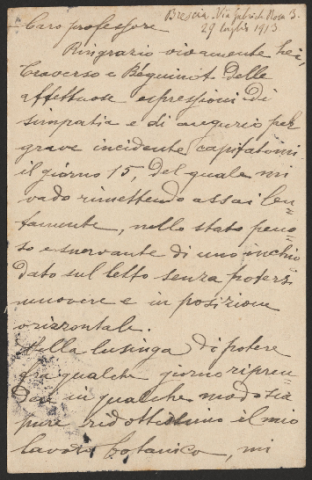 Brescia. Via Gabriele Rosa 3.
29 luglio 1913
Caro professore
Ringrazio vivamente lei,
Traverso e Béguinot delle
affettuose espressioni di
simpatia e di augurio pel
grave incidente capitatomi
il giorno 15, del quale mi
vado rimettendo assai len-
tamente, nello stato peno-
so e snervante di uno inchio
dato sul letto senza potersi
muovere e in posizione
orizzontale.
Nella lusinga di potere
fra qualche giorno ripren
dere in qualche modo sia
pure ridottissimo il mio
lavoro botanico, mi